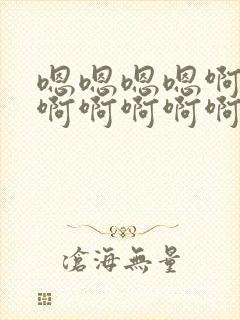 嗯嗯嗯嗯啊
啊啊啊啊啊
滄海無量